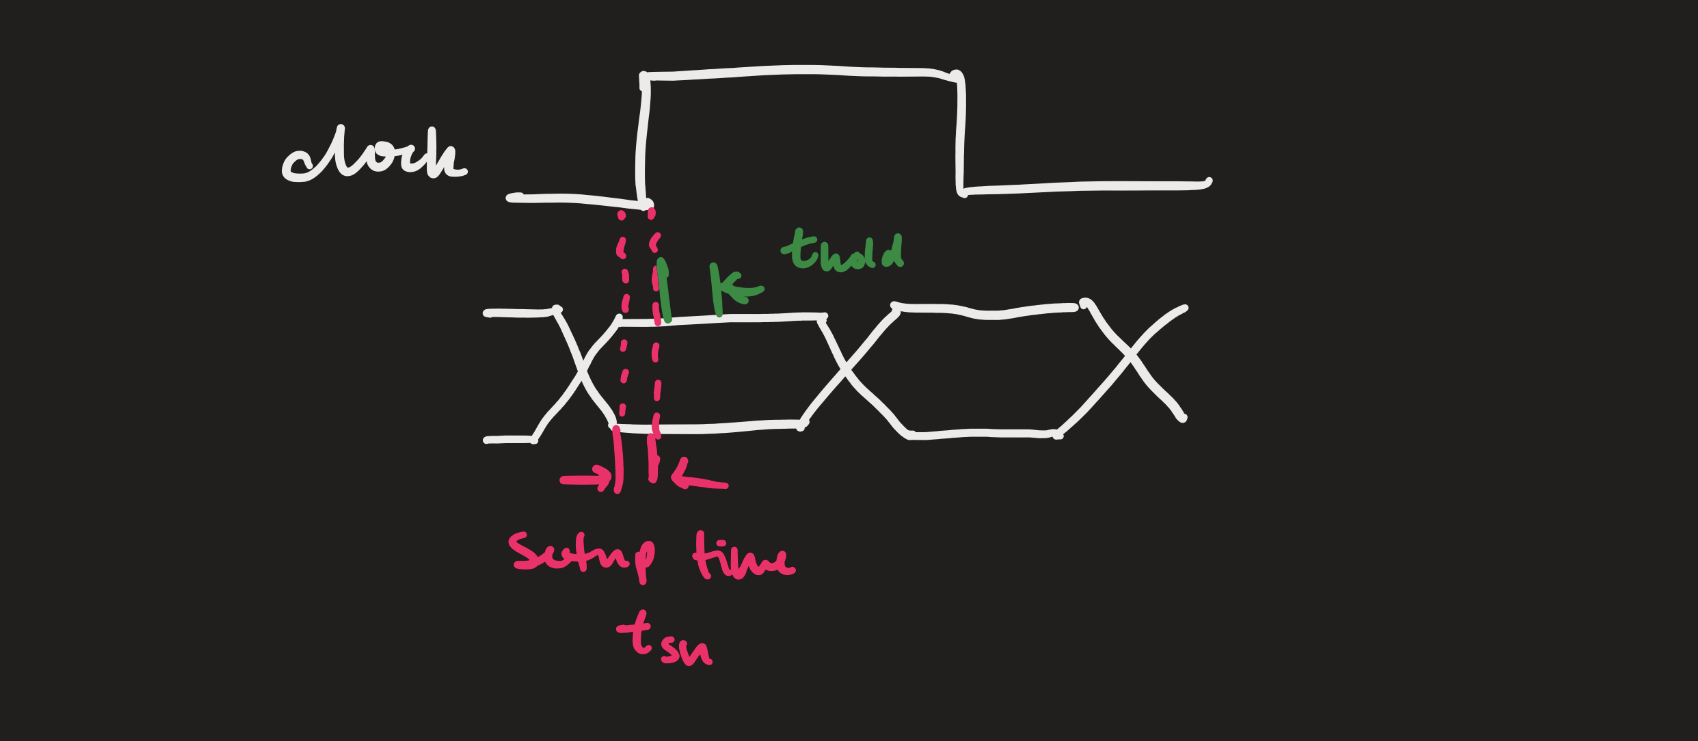 clock
thold
Setup time
tsu